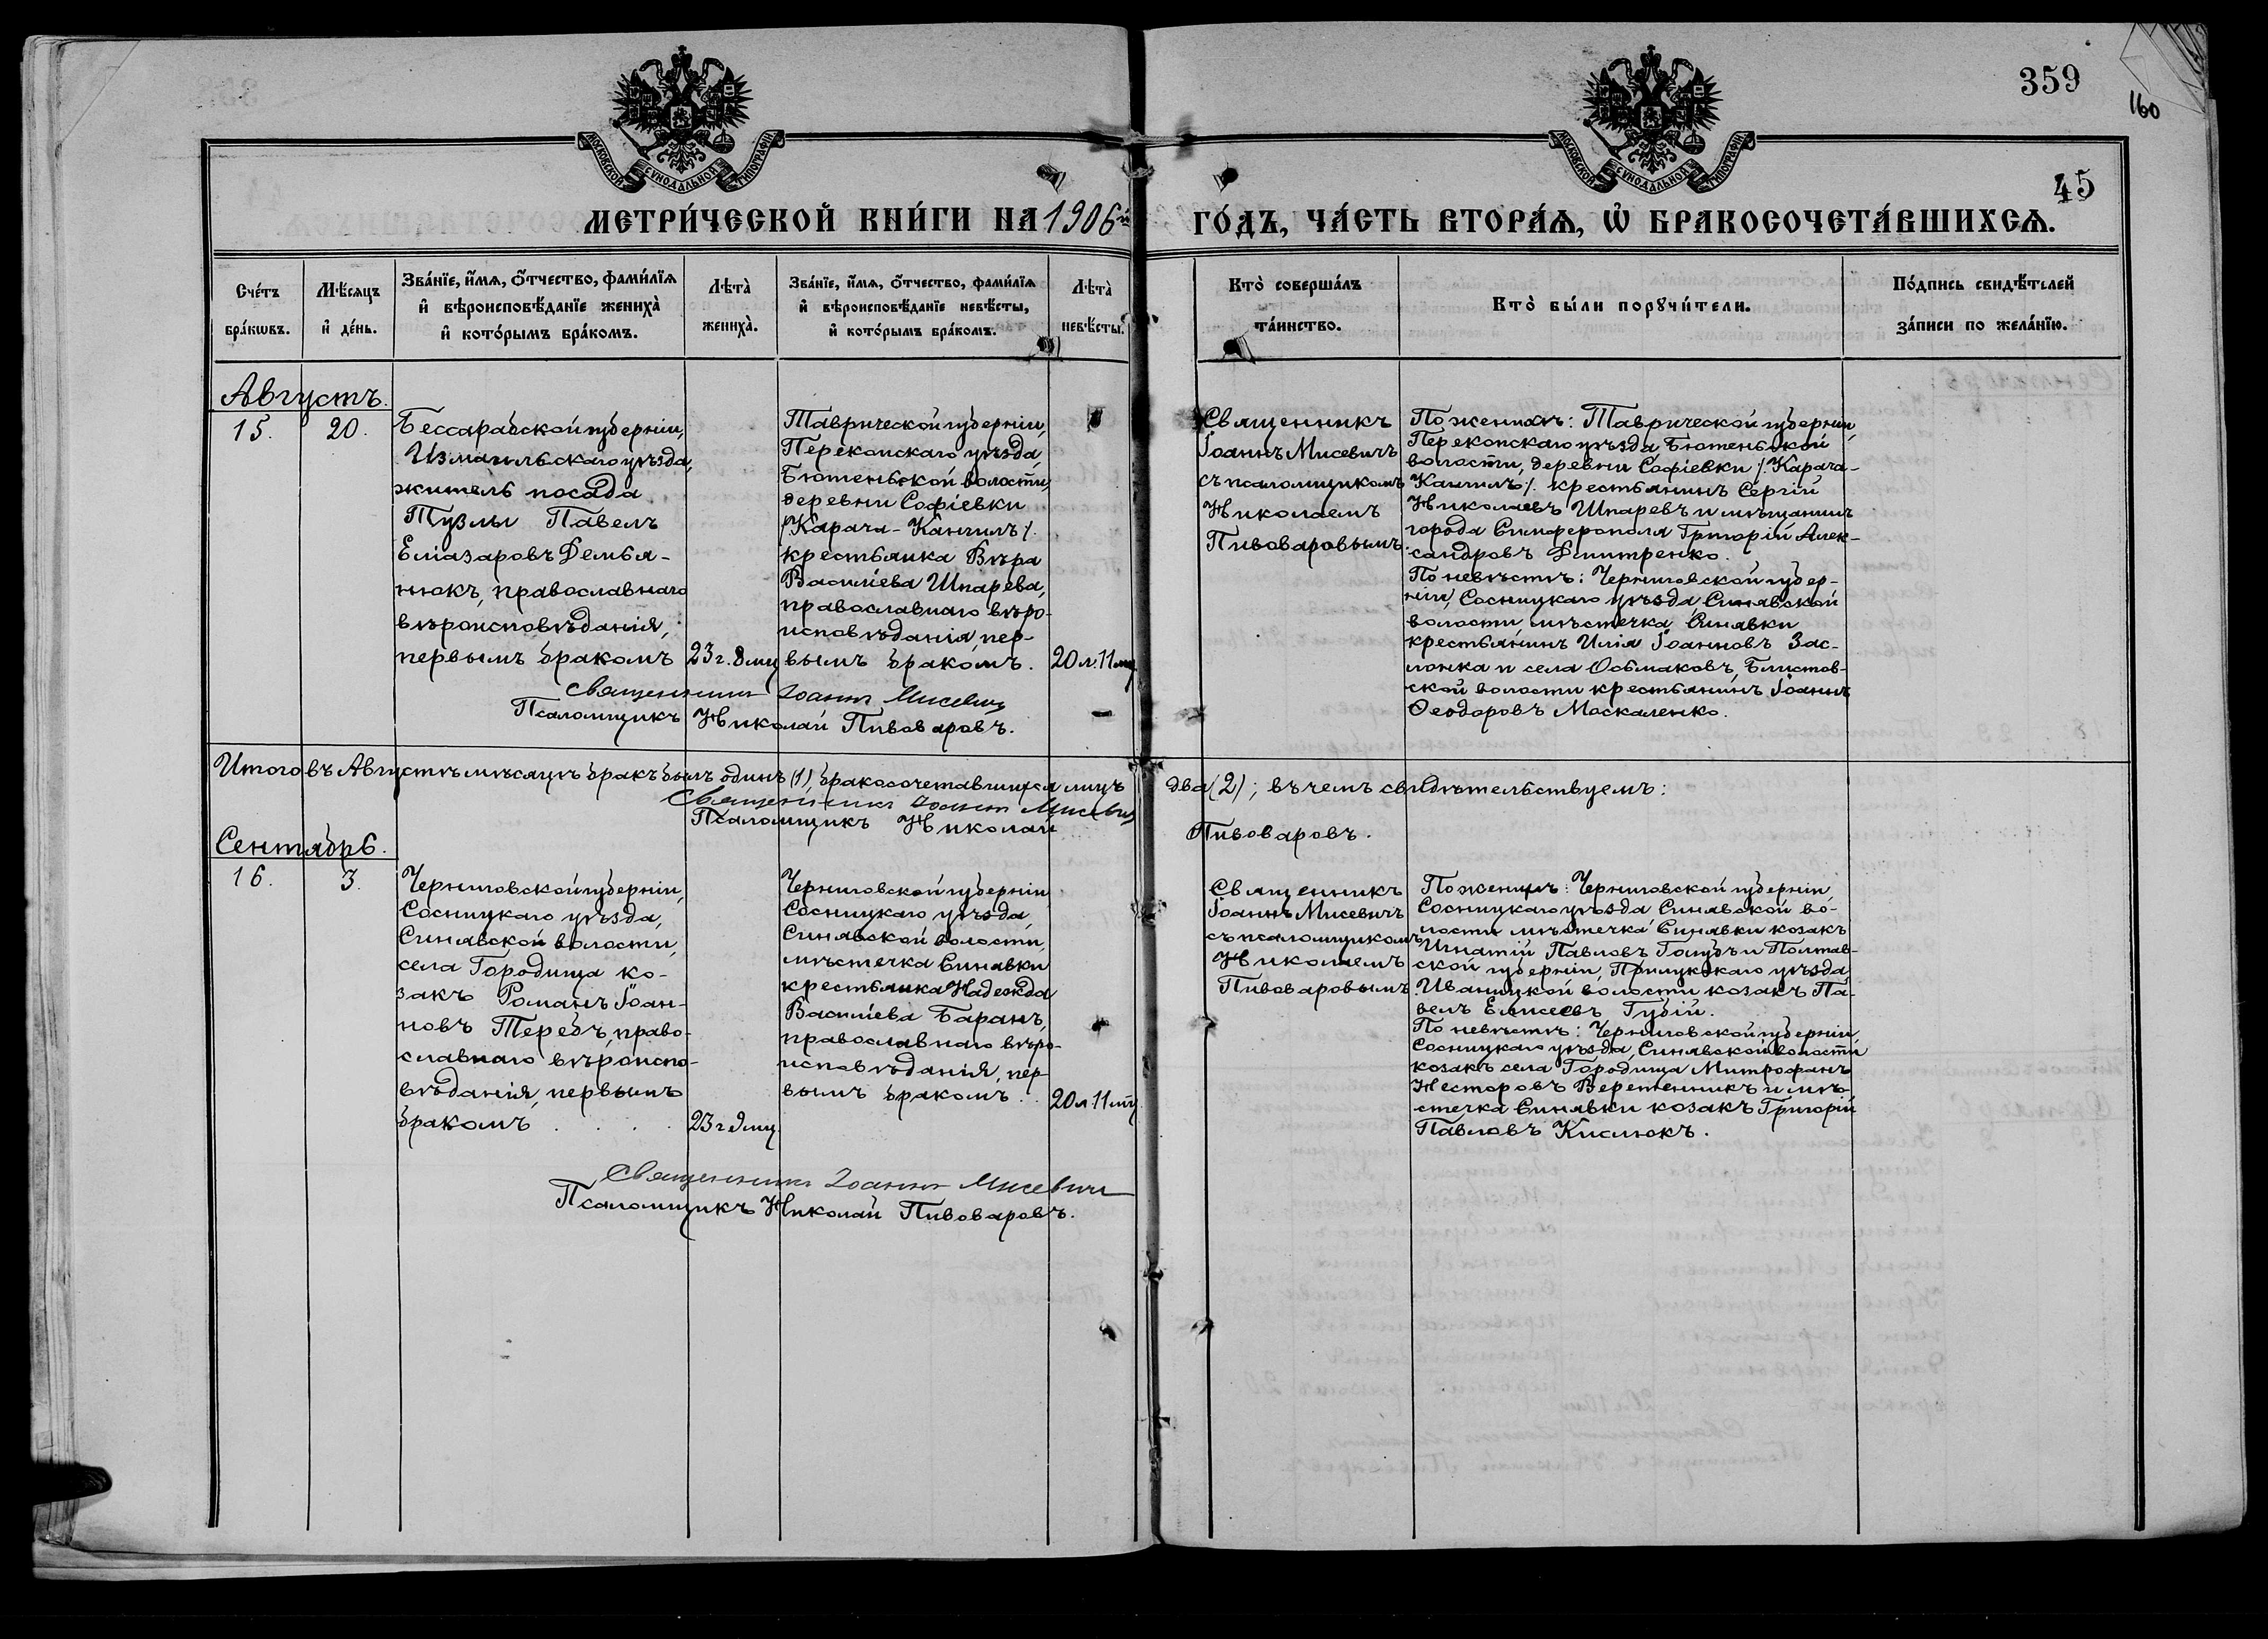 359
160
45
МОСКОВСКОЙ СѴНОДАЛЬНОЙ ТИПОГРАФІИ
МОСКОВСКОЙ СѴНОДАЛЬНОЙ ТИПОГРАФІИ
МЕТРИ́ЧЕСКОЙ КНИ́ГИ НА 1906й
ГО́ДЪ, ЧА́СТЬ ВТОРА́Ѧ, Ѡ҆ БРАКОСОЧЕТА́ВШИХСѦ.
Сче́тъ
бра́кѡвъ.
Мѣ́сяцъ
и҆ де́нь.
Зва́нїе, и҆́мѧ, ѻ҆́тчество, фами́лїѧ
и҆ вѣроисповѣ́данїе жениха̀
и҆ кото́рымъ бра́комъ.
Лѣта̀
жениха̀.
Зва́нїе, и҆́мѧ, ѻ҆́тчество, фами́лїѧ
и҆ вѣроисповѣ́данїе невѣ́сты,
и҆ кото́рымъ бра́комъ.
Лѣта̀
невѣ́сты.
Кто̀ соверша́лъ
та́инство.
Кто̀ бы́ли порꙋчи́тели.
По́дпись свидѣ́телей
за́писи по жела́нїю.
Августъ.
15.
20.
Бессарабской губерніи,
Измаильскаго уѣзда,
житель посада
Тузлы Павелъ
Еліазаровъ Демья-
нюкъ, православнаго
вѣроисповѣданія,
первымъ бракомъ
23 г. 8 мц
Таврической губерніи,
Перекопскаго уѣзда,
Бютеньской волости,
деревни Софіевки
/Карача-Кангилъ/.
крестьянка Вѣра
Василіева Шпарева,
православнаго вѣро-
исповѣданія, пер-
вымъ бракомъ.
20 л. 11 мц.
Священникъ
Іоаннъ Мисевичъ
съ псаломщикомъ
Николаемъ
Пивоваровымъ.
По женихѣ: Таврической губерніи,
Перекопскаго уѣзда, Бютеньской
волости, деревни Софіевки /. Карача-
Кангилъ/. крестьянинъ Сергій
Николаевъ Шпаревъ и мѣщанинъ
города Симферополя Григорій Алек-
сандровъ Дмитренко.
По невѣстѣ: Черниговской губер-
ніи, Сосницкаго уѣзда Синявской
волости, мѣстечка Синявки
крестьянинъ Илія Іоанновъ Зас-
лонка и села Осьмаковъ, Блистов-
ской волости крестьянинъ Іоаннъ
Ѳеодоровъ Москаленко.
Священникъ Іоаннъ Мисевичъ
Псаломщикъ Николай Пивоваровъ.
Итого въ Августѣ мѣсяцѣ бракъ былъ одинъ (1), бракосочетавшихся лицъ
два (2); въ чемъ свидѣтельствуемъ:
Священникъ Іоаннъ Мисевичъ
Псаломщикъ Николай
Пивоваровъ.
Сентябрь.
16.
3.
Черниговской губерніи,
Сосницкаго уѣзда,
Синявской волости,
села Городища ко-
закъ Романъ Іоан-
новъ Теребъ, право-
славнаго вѣроиспо-
вѣданія, первымъ
бракомъ . . . .
23 г 9 мц.
Черниговской губерніи,
Сосницкаго уѣзда,
Синявской волости,
мѣстечка Синявки
крестьянка Надежда
Василіева Баранъ,
православнаго вѣро-
исповѣданія, пер-
вымъ бракомъ . .
20 л. 11 мц.
Священникъ
Іоаннъ Мисевичъ
съ псаломщикомъ
Николаемъ
Пивоваровымъ.
По женихѣ: Черниговской губерніи
Сосницкаго уѣзда Синявской во-
лости мѣстечка Синявки козакъ
Игнатій Павловъ Голубъ и Полтав-
ской губерніи, Прилукскаго уѣзда
Иваницкой волости козакъ Па-
велъ Елисеевъ Губій.
По невѣстѣ: Черниговской губерніи,
Сосницкаго уѣзда, Синявской волости
козакъ села Городища Митрофанъ
Несторовъ Веретенникъ и мѣ-
стечка Синявки козакъ Григорій
Павловъ Кислюкъ.
Священникъ Іоаннъ Мисевичъ
Псаломщикъ Николай Пивоваровъ.